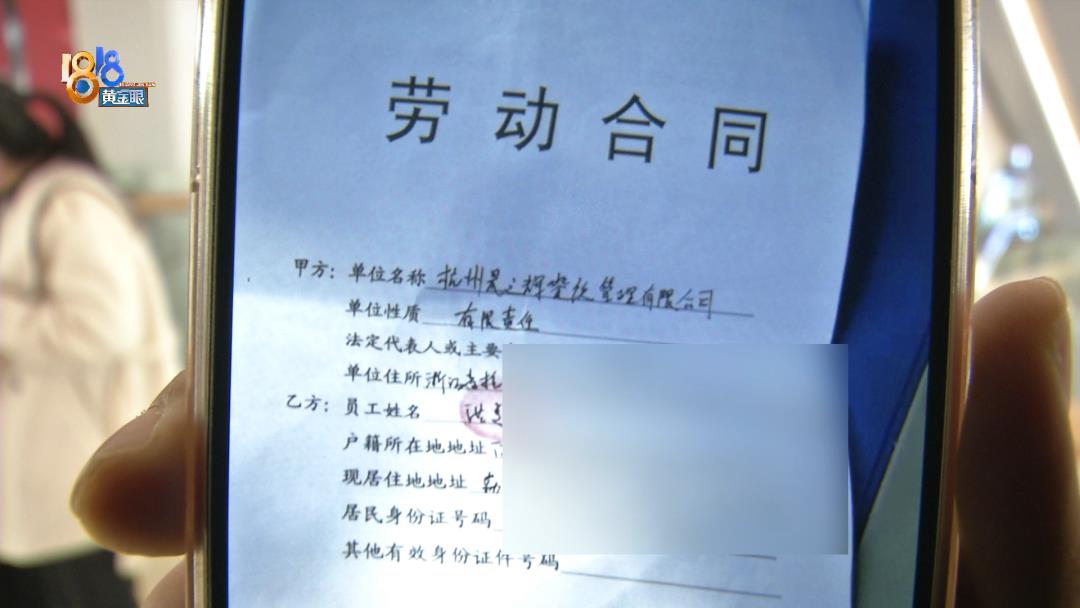 1818
黄金眼
劳动合同
甲方：单位名称 杭州晨之辉餐饮管理有限公司
单位性质 有限责任
法定代表人或主要
单位住所 浙江省杭
乙方：员工姓名 洪
户籍所在地地址
现居住地地址
居民身份证号码
其他有效身份证件号码